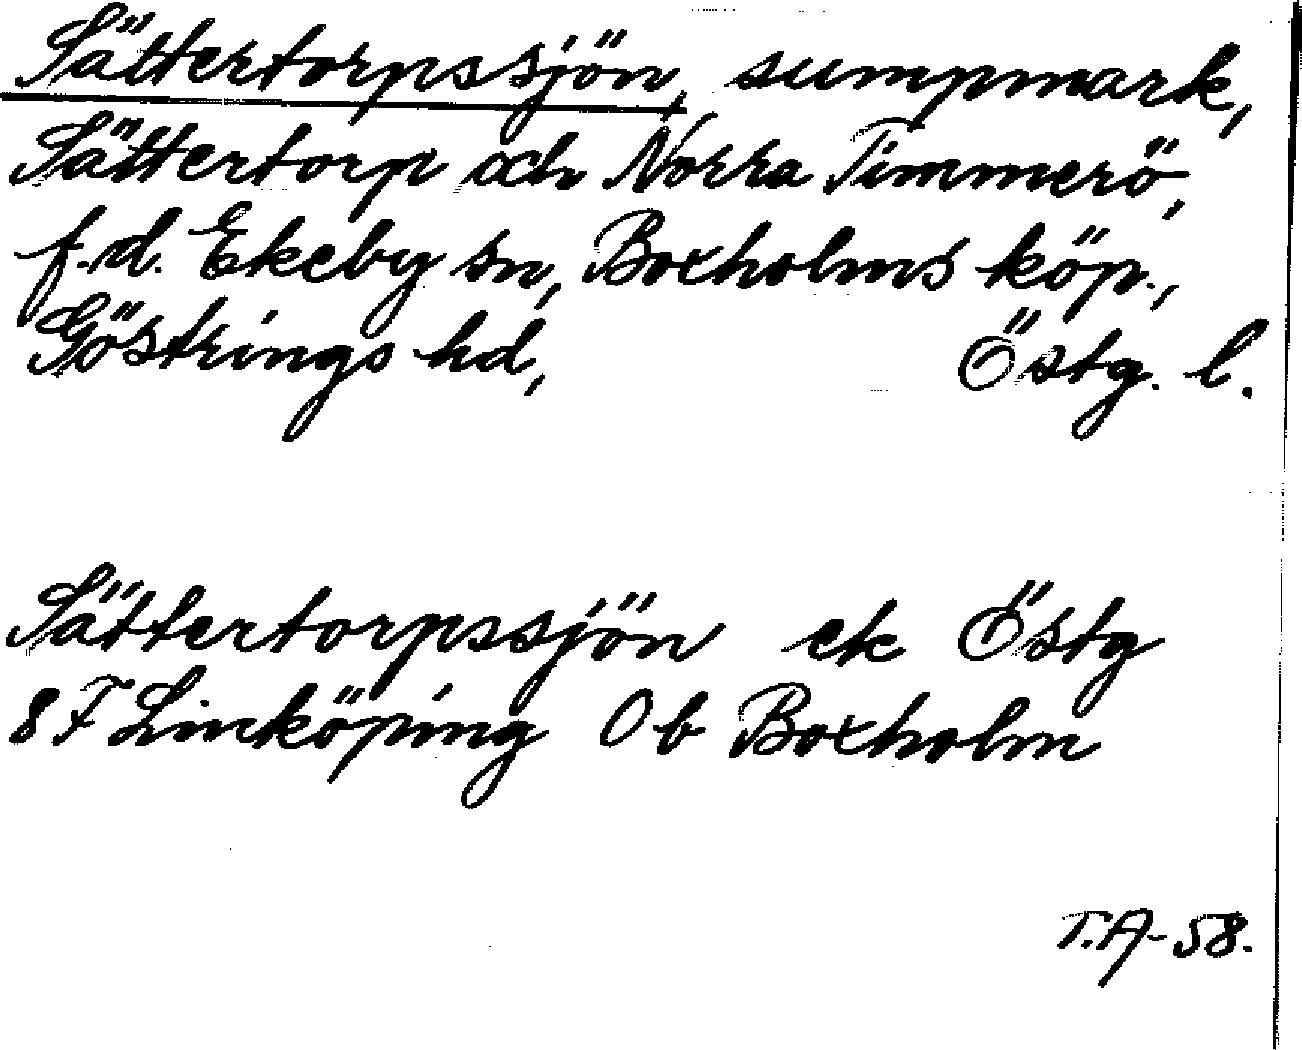 Sättertorpssjön, sumpmark,
Sättertorp och Norra Timmerö,
f.d. Ekeby sn, Boxholms köp.,
Göstrings hd, Östg. l.
Sättertorpssjön ek Östg
8 F Linköping 0 b Boxholm
T.A-58.